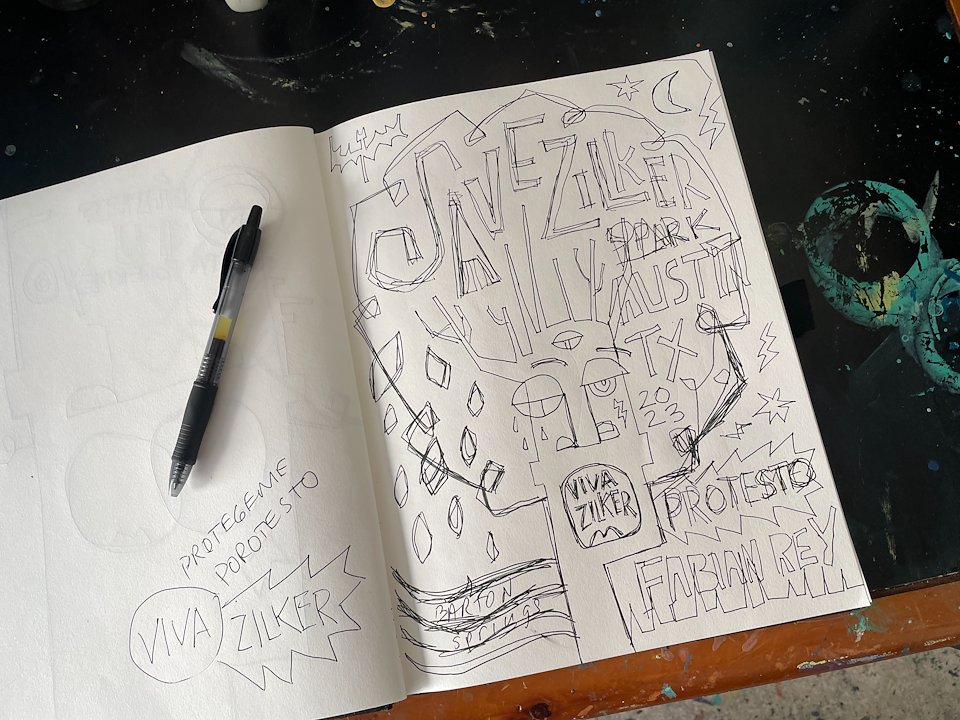 PROTEGEME
POROTESTO
VIVA
ZILKER
SAVE ZILKER
PARK
AUSTIN
TX
2023
VIVA
ZILKER
PROTESTO
FABIAN REY
BARTON
SPRINGS